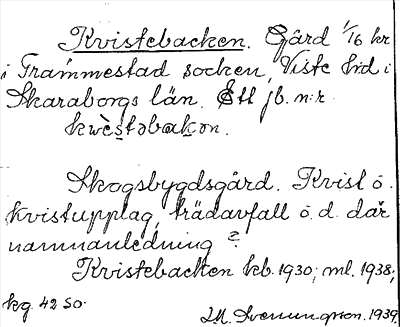 Kvistebacken. Gård 1/16 kr
i Trammestad socken, Viste hd i
Skaraborgs län. Ett jb. n:r
kwèstəbakən.
Skogsbygdsgård. Kvist o.
kvistupplag, trädavfall o. d. där
namnanledning?
Kvistebacken kb. 1930; ml. 1938;
kg. 42 SO.
Svenungsson. 1939.